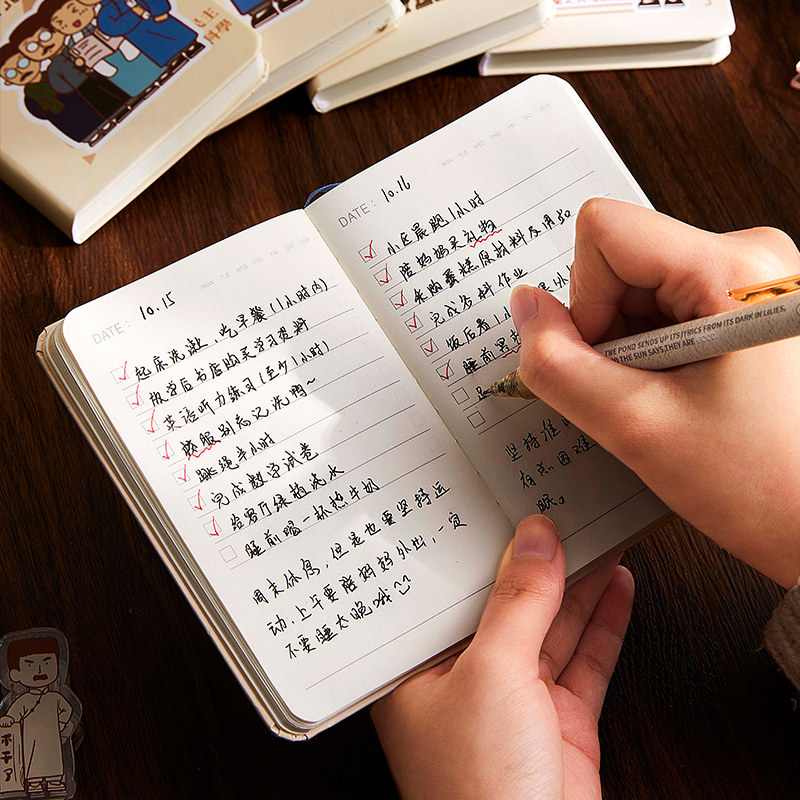 DATE: 10.15
MON TUE WED THU FRI SAT SUN
起床洗漱、吃早餐(1小时内)
放学后书店购买学习资料
英语听力练习(至少1小时)
校服别忘记洗哟~
跳绳半小时
完成数学试卷
给客厅绿植浇水
睡前喝一杯热牛奶
周末休息,但是也要坚持运
动.上午要陪妈妈外出,一定
不要睡太晚哦
DATE: 10.16
MON TUE WED THU FRI SAT SUN
小区晨跑1小时
陪妈妈买礼物
采购蛋糕原材料及用品
完成各科作业
饭后看1小
睡前
坚持
有点困难
眠。
THE POND SENDS UP ITS LYRICS FROM ITS DARK IN LILIES,
THE SUN SAYS, THEY ARE GOOD.
不干了